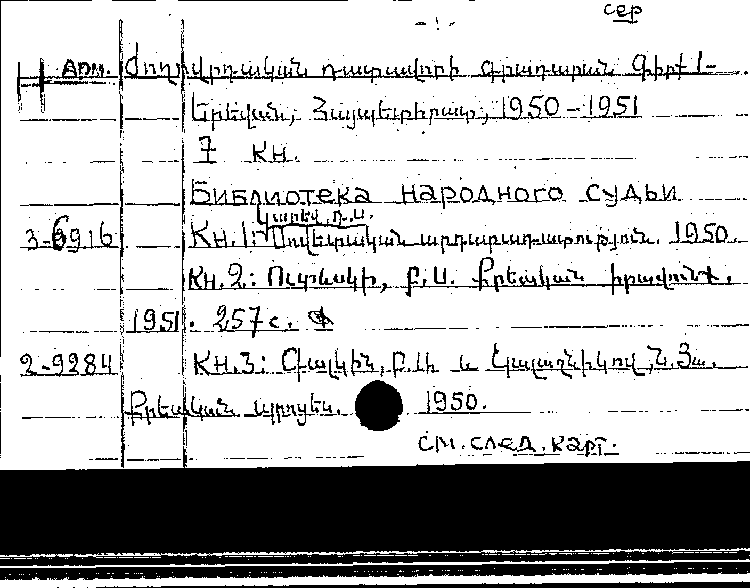 сер
- 1 -
Арм. Ժողովրդական դատավորի գրադարան Գիրք 1-
Երևան, Հայպետհրատ, 1950-1951
7 кн.
Библиотека народного судьи
Կարև, Դ.Ս.
3-6916 Кн.1: Սովետական արդարադատություն. 1950.
Кн.2: Ուտևսկի, Բ.Ս. Քրեական իրավունք.
1951. 257с.
2-9284 Кн.3: Գալկին, Բ.Ա. և Կալաշնիկով, Ն. Յա.
Քրեական պրոցես. 1950.
см. след. карт.